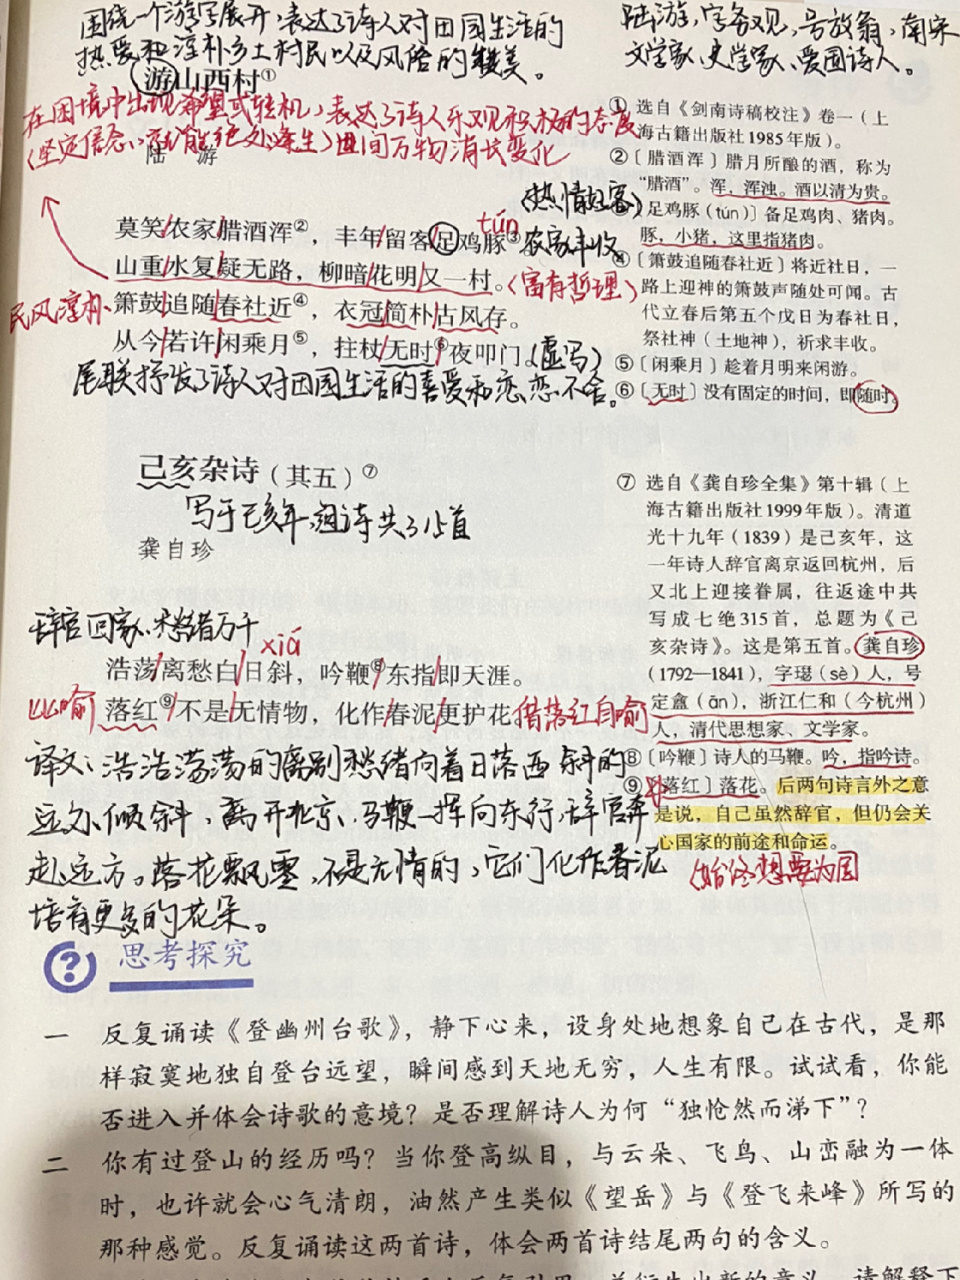 围绕一个游字展开，表达了诗人对田园生活的
热爱和淳朴乡土村民以及风俗的赞美。
陆游，字务观，号放翁，南宋
文学家、史学家、爱国诗人。
游山西村①
在困境中出现希望或转机，表达了诗人乐观积极的态度
（坚定信念，就能绝处逢生）世间万物消长变化
陆 游
（热情好客）
tún
莫笑/农家/腊酒浑②，丰年/留客/足鸡豚③。
农家丰收
山重/水复/疑无路，柳暗/花明/又一村。
（富有哲理）
民风淳朴
箫鼓/追随/春社近④，衣冠/简朴/古风存。
从今/若许/闲乘月⑤，拄杖/无时⑥/夜叩门。
（虚写）
尾联抒发了诗人对田园生活的喜爱和恋恋不舍。
① 选自《剑南诗稿校注》卷一（上
海古籍出版社1985年版）。
②〔腊酒浑〕腊月所酿的酒，称为
“腊酒”。浑，浑浊。酒以清为贵。
足鸡豚（tún）〕备足鸡肉、猪肉。
豚，小猪，这里指猪肉。
④〔箫鼓追随春社近〕将近社日，一
路上迎神的箫鼓声随处可闻。古
代立春后第五个戊日为春社日，
祭社神（土地神），祈求丰收。
⑤〔闲乘月〕趁着月明来闲游。
⑥〔无时〕没有固定的时间，即随时。
己亥杂诗（其五）⑦
写于己亥年，组诗共315首
龚自珍
辞官回家，愁绪万千
xiá
浩荡/离愁白/日斜，吟鞭⑧/东指/即天涯。
比喻
落红⑨/不是/无情物，化作/春泥/更护花。
借落红自喻
译文：浩浩荡荡的离别愁绪向着日落西斜的
远处倾斜，离开北京，马鞭一挥向东行，辞官奔
赴远方。落花飘零，不是无情的，它们化作春泥
培育更多的花朵。
⑦ 选自《龚自珍全集》第十辑（上
海古籍出版社1999年版）。清道
光十九年（1839）是己亥年，这
一年诗人辞官离京返回杭州，后
又北上迎接眷属，往返途中共
写成七绝315首，总题为《己
亥杂诗》。这是第五首。龚自珍
（1792—1841），字璱（sè）人，号
定盦（ān），浙江仁和（今杭州）
人，清代思想家、文学家。
⑧〔吟鞭〕诗人的马鞭。吟，指吟诗。
⑨〔落红〕落花。后两句诗言外之意
是说，自己虽然辞官，但仍会关
心国家的前途和命运。
（始终想要为国
思考探究
一 反复诵读《登幽州台歌》，静下心来，设身处地想象自己在古代，是那
样寂寞地独自登台远望，瞬间感到天地无穷，人生有限。试试看，你能
否进入并体会诗歌的意境？是否理解诗人为何“独怆然而涕下”？
二 你有过登山的经历吗？当你登高纵目，与云朵、飞鸟、山峦融为一体
时，也许就会心气清朗，油然产生类似《望岳》与《登飞来峰》所写的
那种感觉。反复诵读这两首诗，体会两首诗结尾两句的含义。